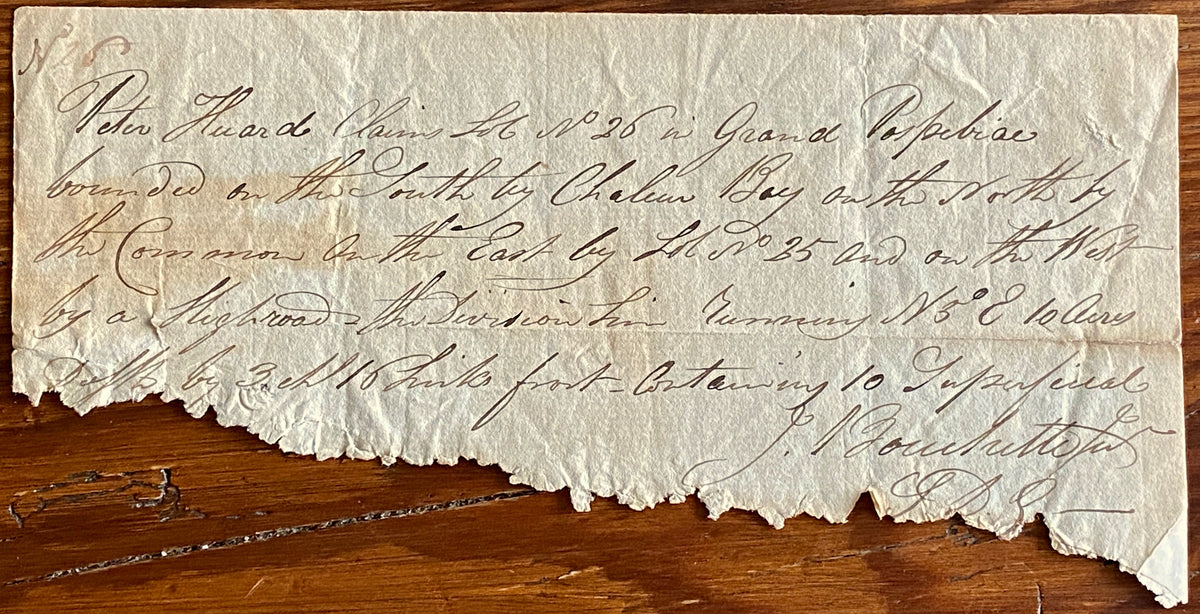 No 26
Peter Huard Claims Lot No 26 in Grand Paspebiac
bounded on the South by Chaleur Bay on the North by
the Common on the East by Lot No 25 and on the West
by a Highroad = the Division Line running N 3° E 10 Acres
Depth by 3 ch 16 links front = Containing 10 Superficial
J. Bouchette Jur